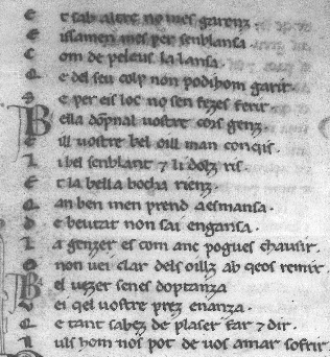 E t sab altre no mes guirenz.
E issamen mes per senblansa.
C om de peleus la lansa.
Q e del seu colp non podihom garir.
S e per eis loc no sen fezes ferir.
B ella domnal vostre cors genz.
E ill vostre bel oill man conqis.
L i bel senblant 7 li dolz ris.
E t la bella bocha rienz.
Q an ben men prend aesmansa.
D e beutat non sai engansa.
L a genzer es com anc pogues chausir.
O non vei clar dels oillz ab qeos remir.
B el vezer senes doptanza
V ei qel vostre prez enanza.
Q e tant sabez de plaser far 7 dir.
N uls hom nos pot de vos amar sofrir